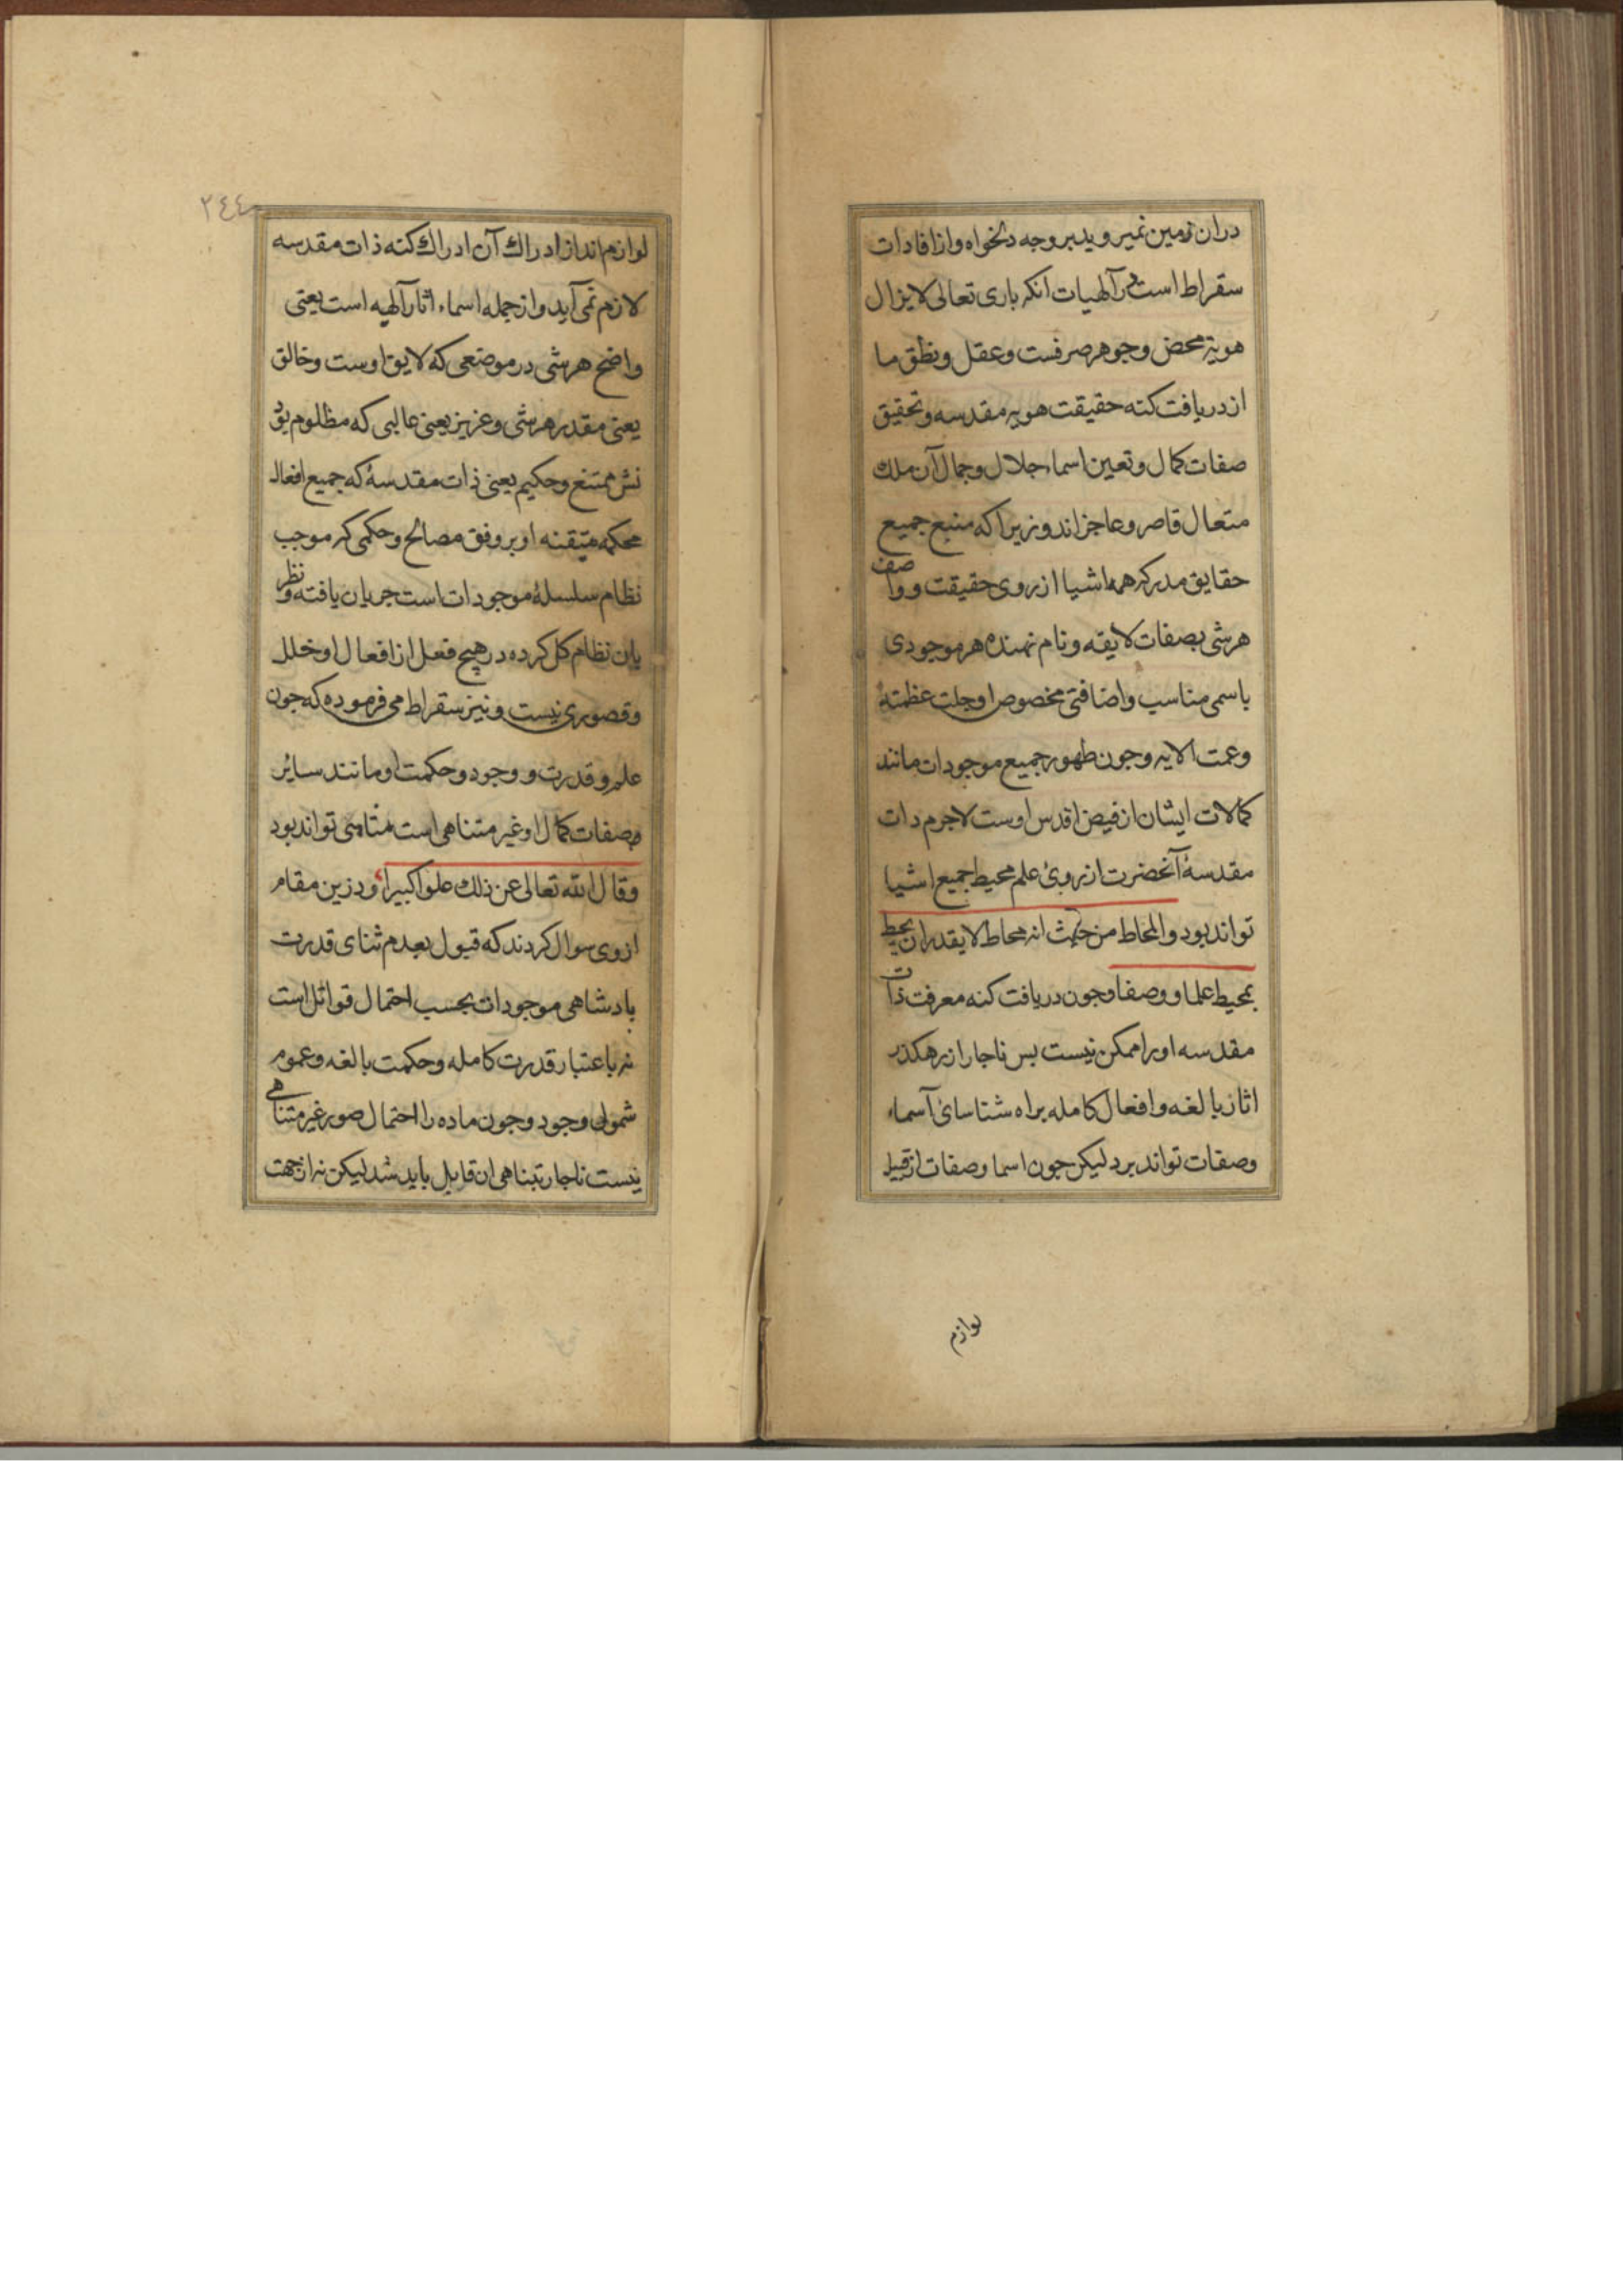 دران زمین نمیروید بروجه دلخواه و از افادات
سقراط است در آلهیات انکه باری تعالی لایزال
هویة محض وجوهر صرفست وعقل ونطق ما
از دریافت کنه حقیقت هویه مقدسه وتحقیق
صفات کمال وتعین اسماء جلال وجمال آن ملك
متعال قاصر وعاجزاند و زیرا که منبع جمیع
حقایق مدرکه همه اشیا از روی حقیقت و واصف
هرشی بصفات لایقه ونام نهنده هر موجودی
باسمی مناسب واضافتی مخصوص اوجلت عظمتهٔ
وعمت الایه وجون ظهور جمیع موجودات مانند
کمالات ایشان از فیض اقدس اوست لاجرم دات
مقدسهٔ آنحضرت از روئ علم محیط جمیع اشیا
تواند بود والمحاط من حیث انه محاط لایقدران یحیط
بمحیط علما و وصفا وجون دریافت کنه معرفت ذات
مقدسه اورا ممکن نیست بس ناجار از رهکذر
اثار بالغه وافعال کامله براه شناسائ آسماء
وصفات تواند برد لیکن جون اسما وصفات از قبیل
لوازم
٢٤٤
لوازم اند از ادراك آن ادراك کنه ذات مقدسه
لازم نمی آید واز جمله اسماء اثار آلهیه است یعنی
واضح هرشی در موضعی که لایق اوست وخالق
یعنی مقدر هرشی وعزیز یعنی عالبی که مظلوم بود
نش ممتنع وحکیم یعنی ذات مقدسهٔ که جمیع افعال
محکمه متیقنه او بر وفق مصالح وحکمی که موجب
نظام سلسلهٔ موجودات است جریان یافته ونظر
بان نظام کل کرده در هیچ فعل از افعال او خلل
وقصوری نیست ونیز سقراط می فرموده که جون
علم و قدرت و وجود وحکمت او مانند سائر
صفات کمال او غیر متناهی است متناهی تواند بود
وقال الله تعالی عن ذلك علوا کبیرا ودرین مقام
ازوی سوال کردند که قبول بعدم ثنای قدرت
بادشاهی موجودات بحسب احتمال قوائل است
نه باعتبار قدرت کامله وحکمت بالغه وعموم
شمول وجود وجون ماده را احتمال صور غیر متناهی
نیست ناجار بتناهی ان قایل باید شد لیکن نه از جهت